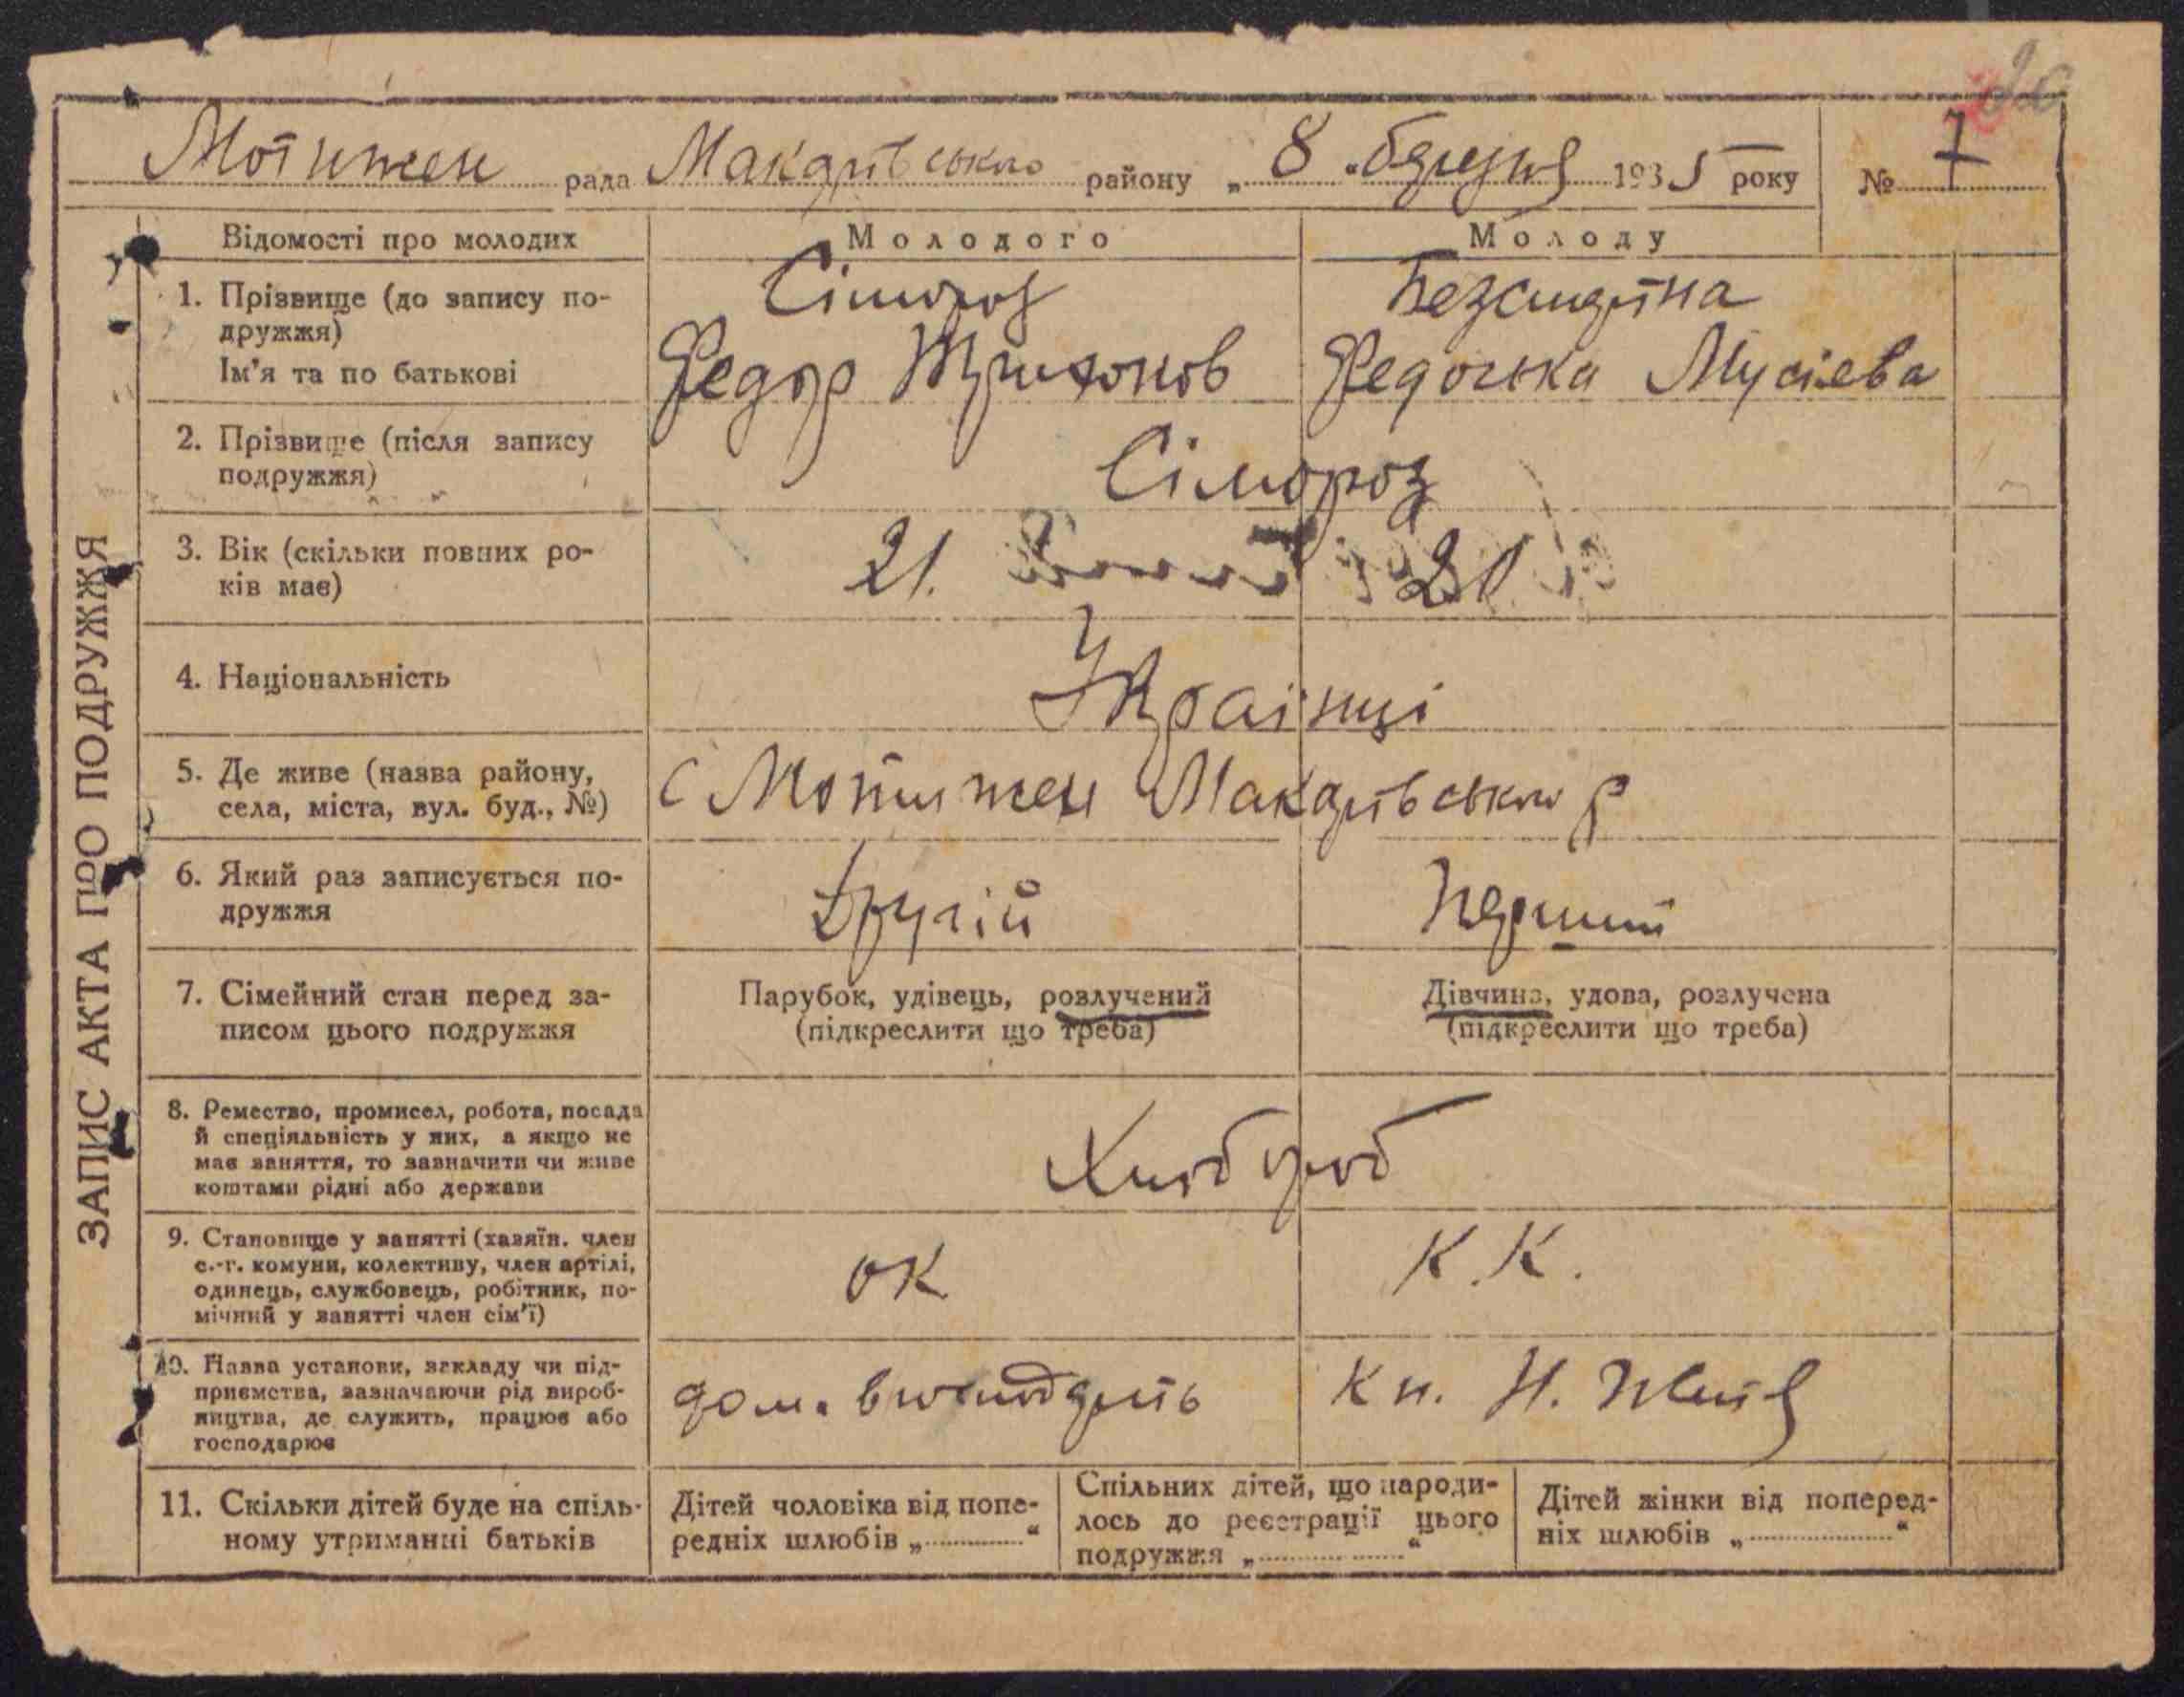 Мотижен рада Макарівського району „ 8 " березня 1935 року № 7
Відомості про молодих Молодого Молоду
1. Прізвище (до запису по-
дружжя)
Сімороз
Ім'я та по батькові
Федор Трихонов Федоська Мусієва
2. Прізвище (після запису
подружжя)
Сімороз
3. Вік (скільки повних ро-
ків має)
21. 20
4. Національність
Українці
5. Де живе (назва району,
села, міста, вул. буд., №)
с Мотижен Макарівського р
6. Який раз записується по-
дружжя
Другій Перший
7. Сімейний стан перед за-
писом цього подружжя
Парубок, удівець, розлучений
(підкреслити що треба)
Дівчина, удова, розлучена
(підкреслити що треба)
8. Ремество, промисел, робота, посада
й спеціяльність у них, а якщо не
має заняття, то зазначити чи живе
коштами рідні або держави
Хлібороб
9. Становище у занятті (хазяїн. член
с.-г. комуни, колективу, член артілі,
одинець, службовець, робітник, по-
мічний у занятті член сім'ї)
ок К.К.
10. Назва установи, закладу чи під-
приємства, зазначаючи рід вироб-
ництва, де служить, працює або
господарює
дом. Н.
11. Скільки дітей буде на спіль-
ному утриманні батьків
Дітей чоловіка від попе-
редніх шлюбів „ "
Спільних дітей, що народи-
лось до реєстрації цього
подружжя „ "
Дітей жінки від поперед-
ніх шлюбів „ "
ЗАПИС АКТА ПРО ПОДРУЖЖЯ